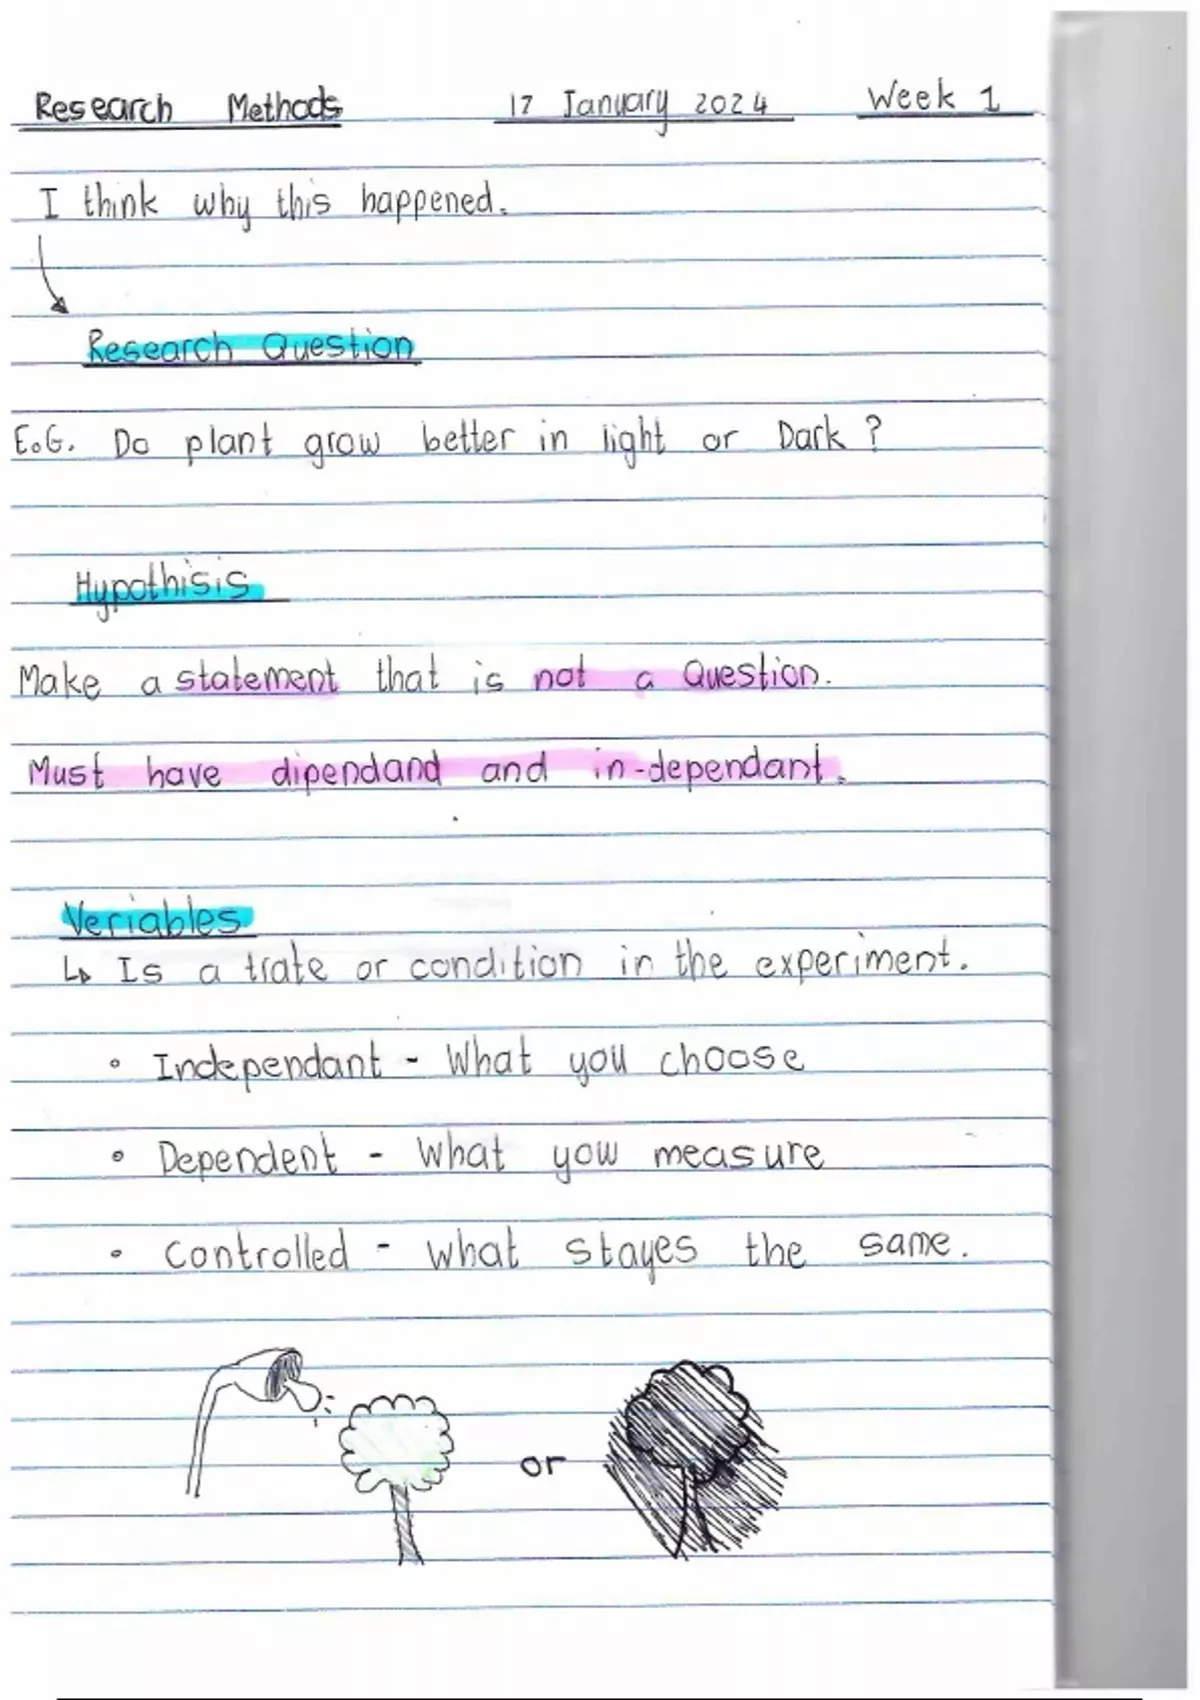 Research Methods 17 January 2024 Week 1
I think why this happened.
Research Question
E.G. Do plant grow better in light or Dark?
Hypothisis
Make a statement that is not a Question.
Must have dipendand and in-dependant.
Veriables
↳ Is a trate or condition in the experiment.
• Independant - What you choose
• Dependent - What you measure
• Controlled - what stayes the same.
or